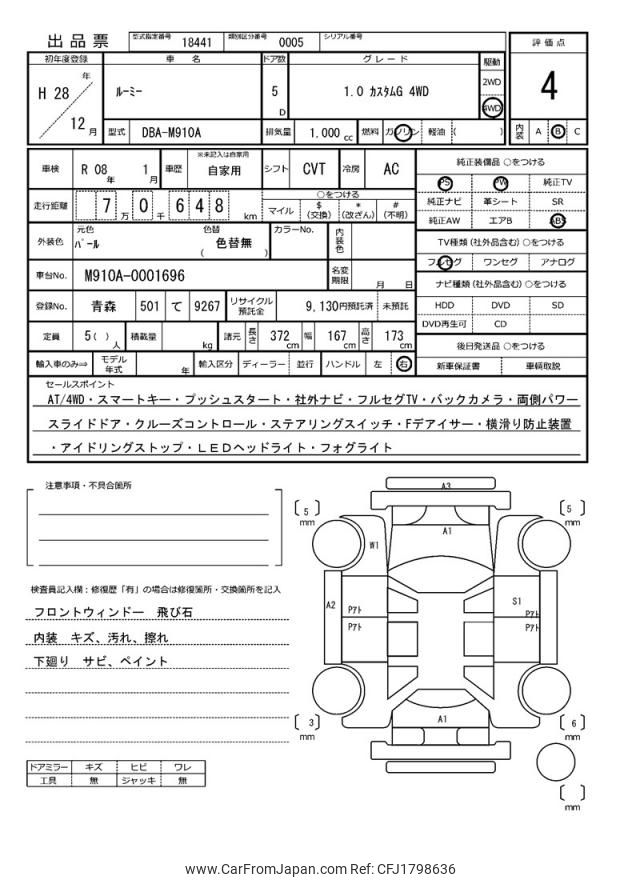 出品票 型式指定番号 18441 類別区分番号 0005 シリアル番号
評価点
4
内装 A B C
初年度登録 車名 ドア数 グレード 駆動
H 28 年 12 月 ルーミー 5 D 1.0 カスタムG 4WD 2WD 4WD
型式 DBA-M910A 排気量 1.000 cc 燃料 ガソリン 軽油 ( )
車検 R 08 年 1 月 車歴 ※未記入は自家用 自家用 シフト CVT 冷房 AC
走行距離 7 万 0 千 6 4 8 km ○をつける
マイル $(交換) *(改ざん) #(不明)
外装色 元色 パール 色替 ( 色替無 ) カラーNo. 内装色
車台No. M910A-0001696 名変期限 月 日
登録No. 青森 501 て 9267 リサイクル預託金 9,130円預託済 未預託
定員 5( )人 積載量 kg 諸元 長さ 372 cm 幅 167 cm 高さ 173 cm
輸入車のみ⇒ モデル年式 年 輸入区分 ディーラー 並行 ハンドル 左 右
純正装備品 ○をつける
PS PW 純正TV
純正ナビ 革シート SR
純正AW エアB ABS
TV種類(社外品含む) ○をつける
フルセグ ワンセグ アナログ
ナビ種類(社外品含む) ○をつける
HDD DVD SD
DVD再生可 CD
後日発送品 ○をつける
新車保証書 車輌取説
セールスポイント
AT/4WD・スマートキー・プッシュスタート・社外ナビ・フルセグTV・バックカメラ・両側パワー
スライドドア・クルーズコントロール・ステアリングスイッチ・Fデアイサー・横滑り防止装置
・アイドリングストップ・LEDヘッドライト・フォグライト
注意事項・不具合箇所
検査員記入欄:修復歴「有」の場合は修復箇所・交換箇所を記入
フロントウィンドー 飛び石
内装 キズ、汚れ、擦れ
下廻り サビ、ペイント
ドアミラー キズ ヒビ ワレ
工具 無 ジャッキ 無
A3
[ 5 ] mm
[ 5 ] mm
A1
W1
A2
Pアト
Pアト
S1
Pアト
Pアト
A1
[ 3 ] mm
[ 6 ] mm
[ ] mm
www.CarFromJapan.com Ref: CFJ1798636